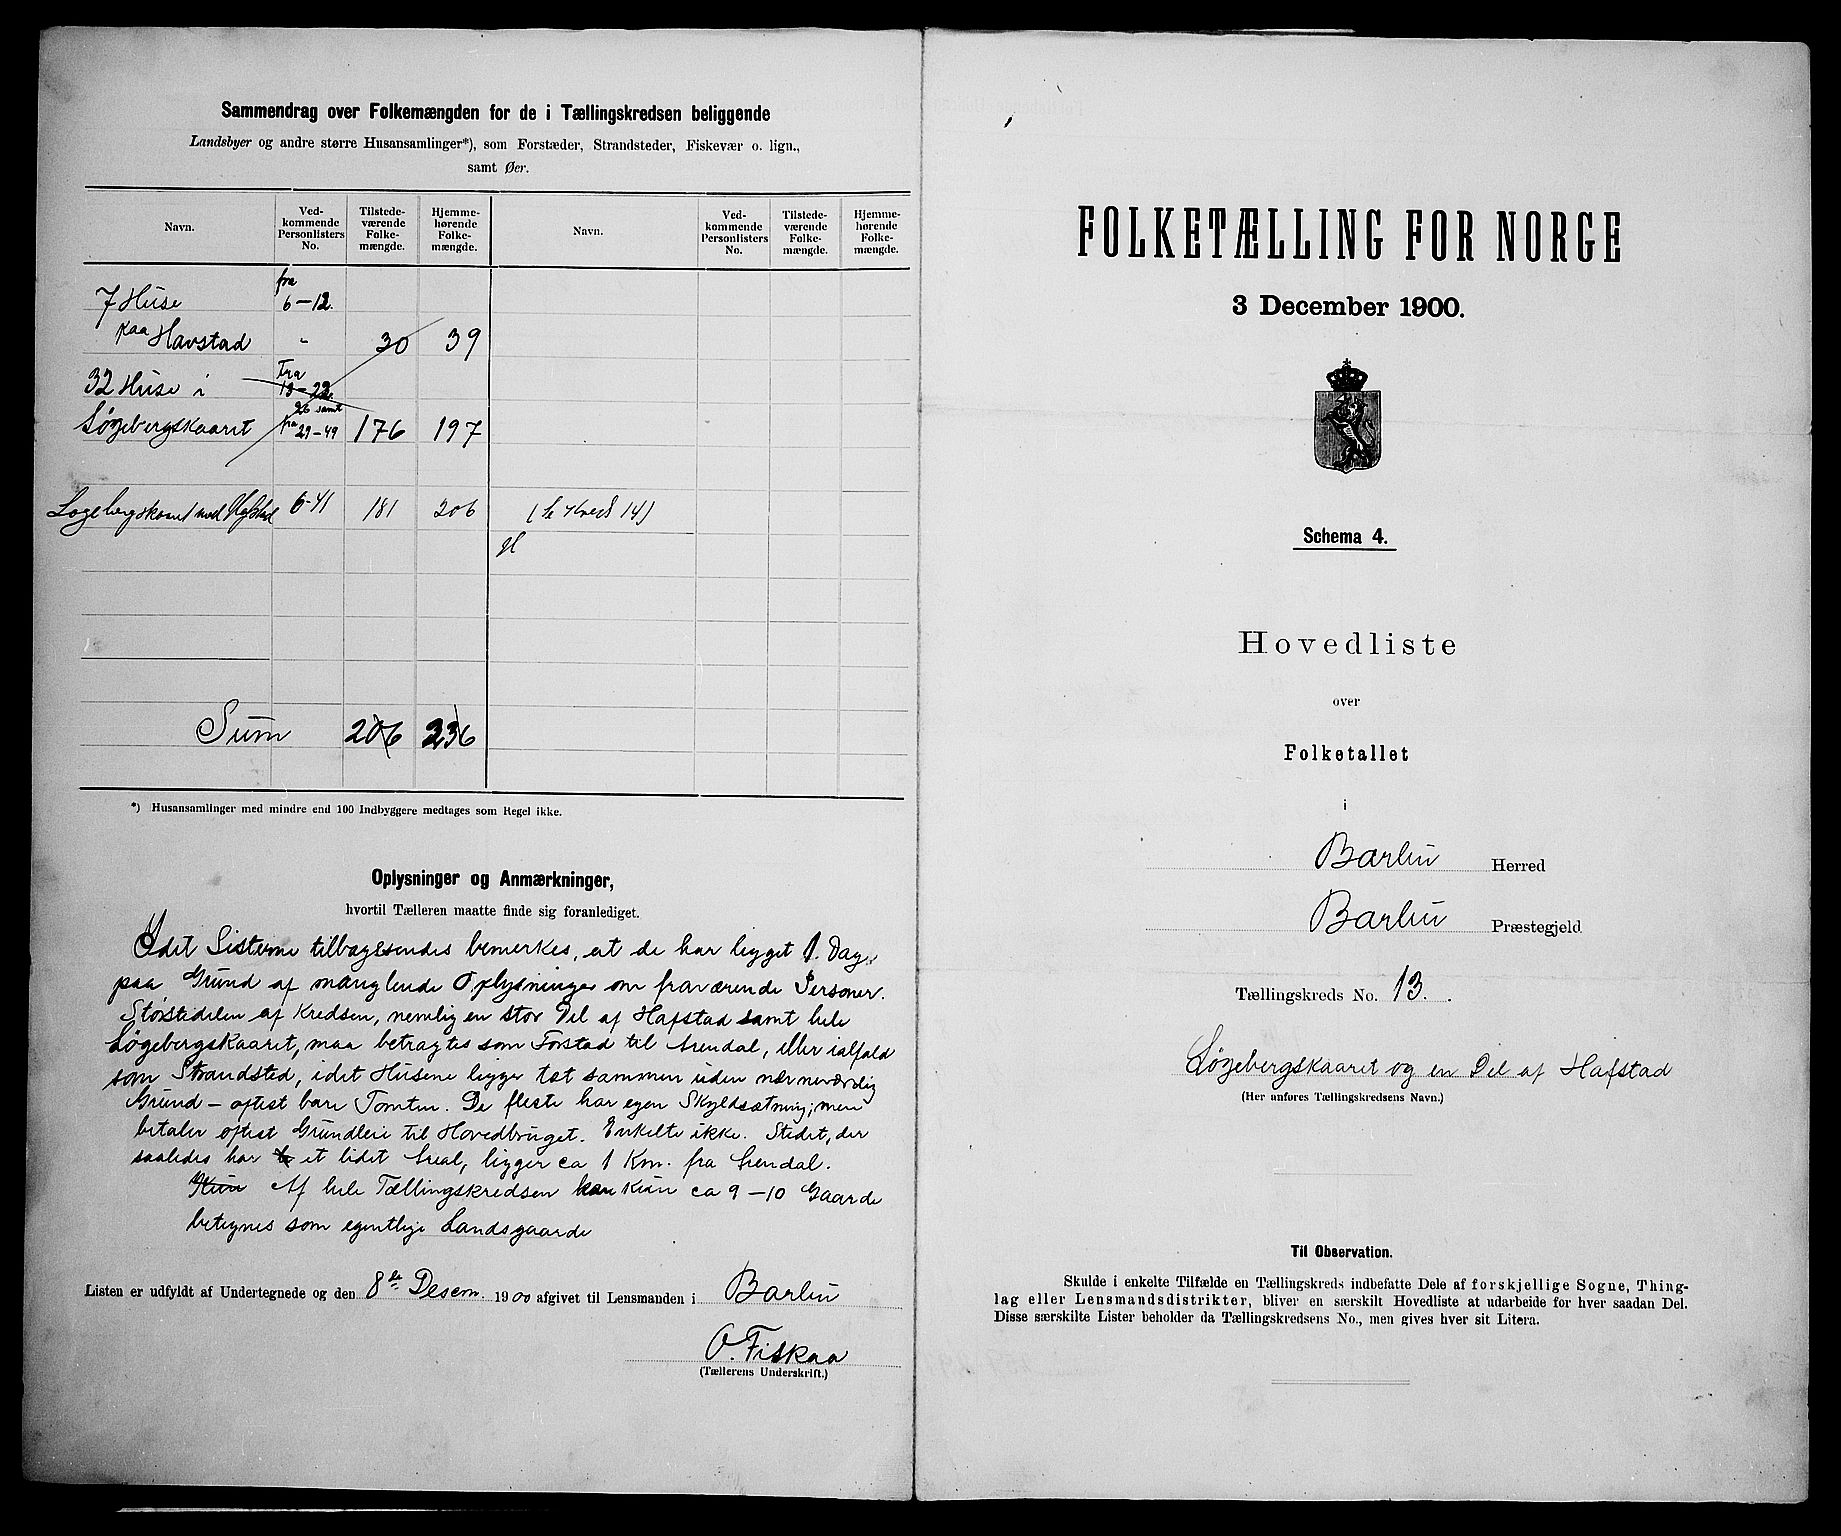 Sammendrag over Folkemængden for de i Tællingskredsen beliggende
Landsbyer og andre større Husansamlinger*), som Forstæder, Strandsteder, Fiskevær o. lign.,
samt Øer.
Navn. Ved-kommende Personlisters No. Tilstede-værende Folke-mængde. Hjemme-hørende Folke-mængde. Navn. Ved-kommende Personlisters No. Tilstede-værende Folke-mængde. Hjemme-hørende Folke-mængde.
7 Huse fra 6–12.
paa Havstad " 30 39
32 Huse i Fra 13–22
26 samt
Løgebergskaaret fra 29–49 176 197
Løgebergskaaret med Hafstad 6-41 181 206 (Se Kreds 14)
Sum 206 236
*) Husansamlinger med mindre end 100 Indbyggere medtages som Regel ikke.
Oplysninger og Anmærkninger,
hvortil Tælleren maatte finde sig foranlediget.
Idet Listerne tilbagesendes bemerkes, at de har ligget 1 Dag
paa Grund af manglende Oplysninger om fraværende Personer.
Størstedelen af Kredsen, nemlig en stor Del af Hafstad samt hele
Løgebergskaaret, maa betragtes som Forstad til Arendal, eller ialfald
som Strandsted, idet Husene ligger tæt sammen uden nævneværdig
Grund – oftest bare Tomten. De fleste har egen Skyldsætning; men
betaler oftest Grundleie til Hovedbruget. Enkelte ikke. Stedet, der
saaledes har et lidet Areal, ligger ca 1 Km. fra Arendal.
Kun Af hele Tællingskredsen kan Kun ca 9–10 Gaarde
betegnes som egentlige Landsgaarde
Listen er udfyldt af Undertegnede og den 8de Desem. 1900 afgivet til Lensmanden i Barbu
O. Fiskaa
(Tællerens Underskrift.)
FOLKETÆLLING FOR NORGE
3 December 1900.
Schema 4.
Hovedliste
over
Folketallet
i
Barbu Herred
Barbu Præstegjeld
Tællingskreds No. 13.
Løgebergskaaret og en Del af Hafstad
(Her anføres Tællingskredsens Navn.)
Til Observation.
Skulde i enkelte Tilfælde en Tællingskreds indbefatte Dele af forskjellige Sogne, Thing-
lag eller Lensmandsdistrikter, bliver en særskilt Hovedliste at udarbeide for hver saadan Del.
Disse særskilte Lister beholder da Tællingskredsens No., men gives hver sit Litera.